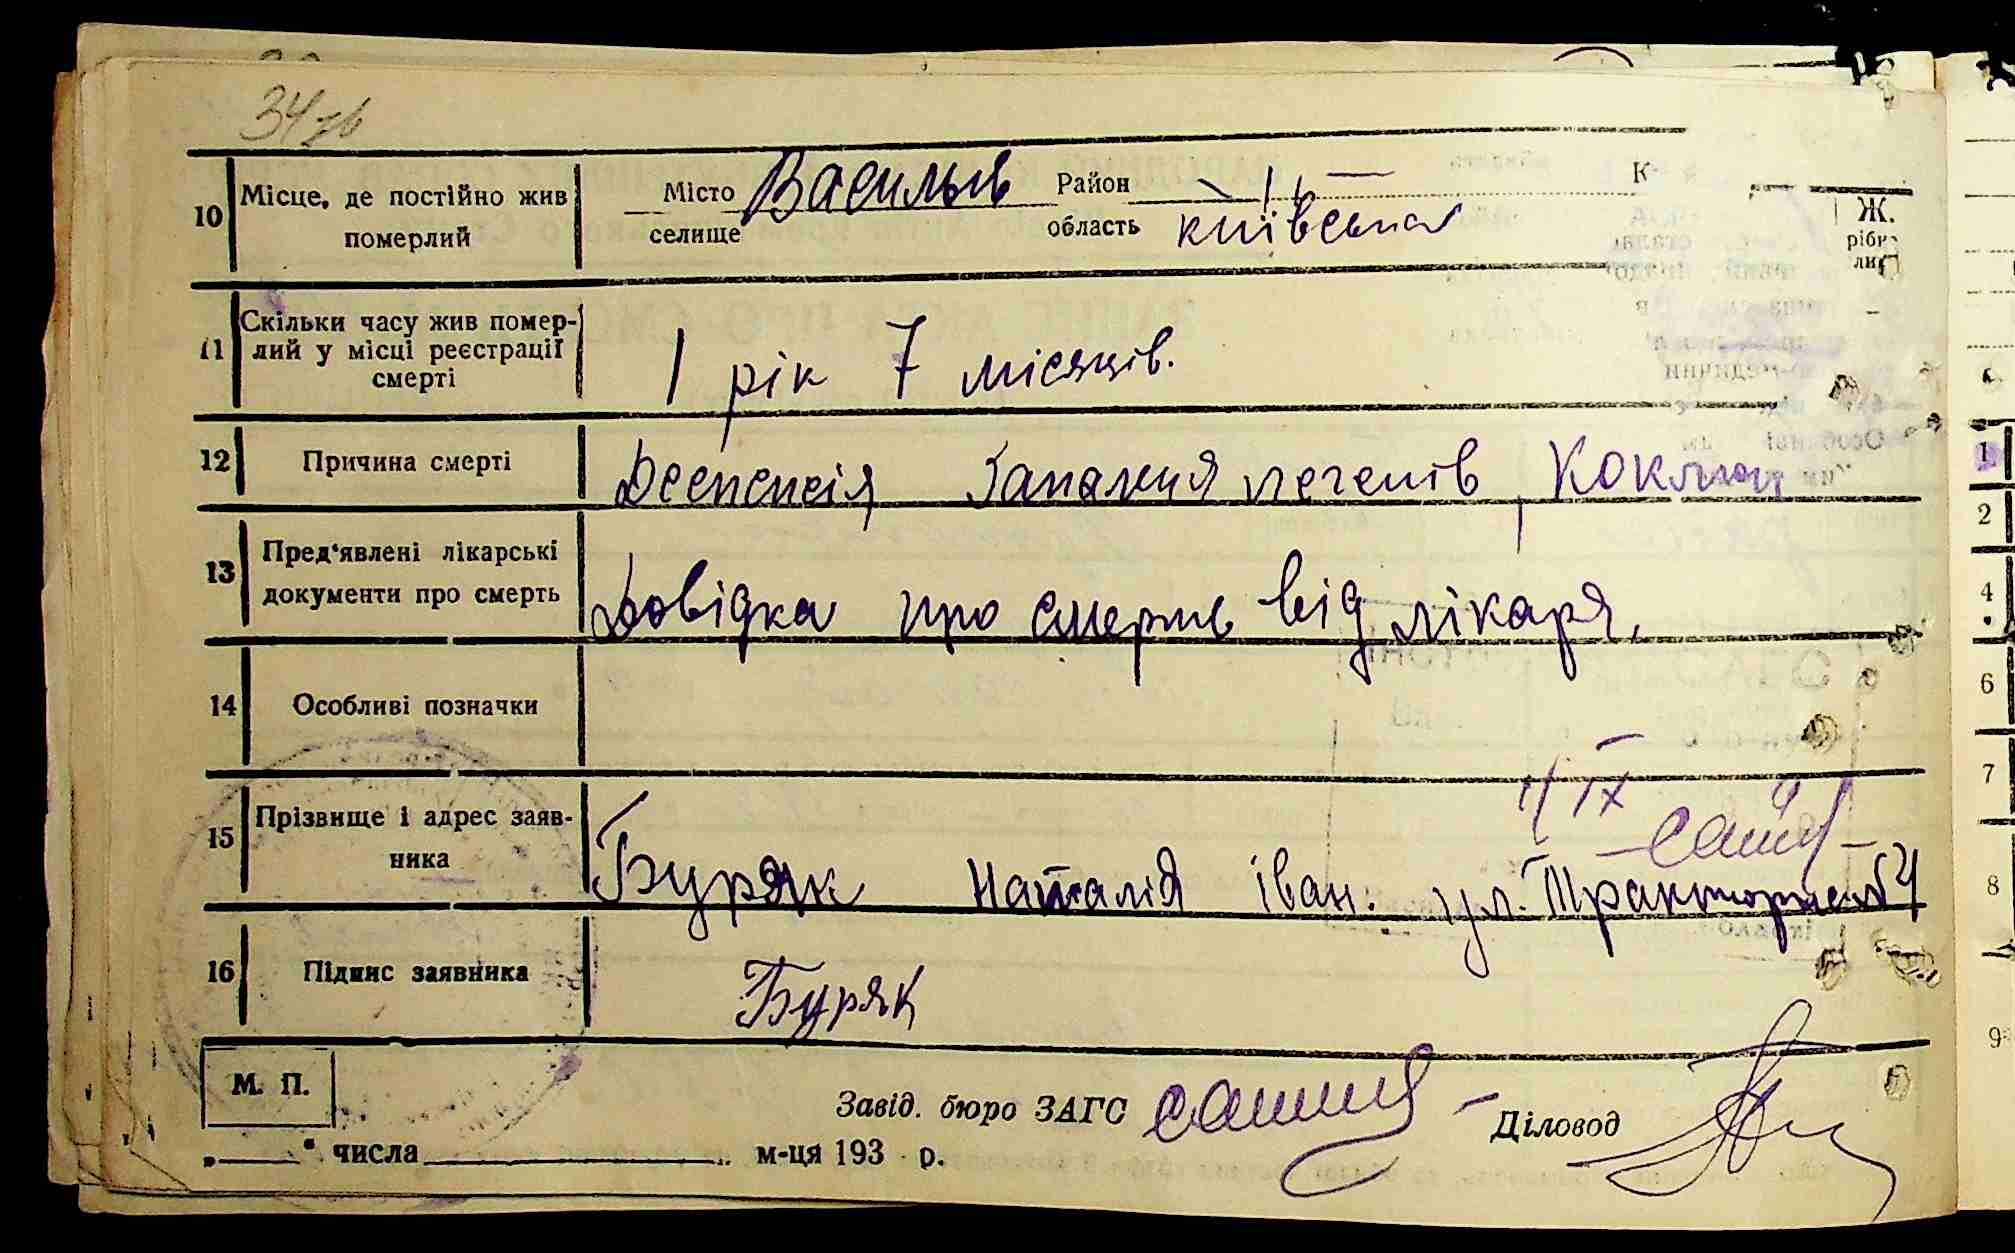 34зв
10 Місце, де постійно жив померлий Місто Васильків Район — " —
селище область київська
11 Скільки часу жив померлий у місці реєстрації смерті 1 рік 7 місяців.
12 Причина смерті Деспепсія Запалення легенів, Коклюш
13 Пред'явлені лікарські документи про смерть Довідка про смерть від лікаря.
14 Особливі позначки
IX
15 Прізвище і адрес заявника Буряк Наталія Іван. ул.
16 Підпис заявника Буряк
М. П.
Завід. бюро ЗАГС Діловод
„ " числа м-ця 193 р.
К
Ж.
1
2
4
6
7
8
9